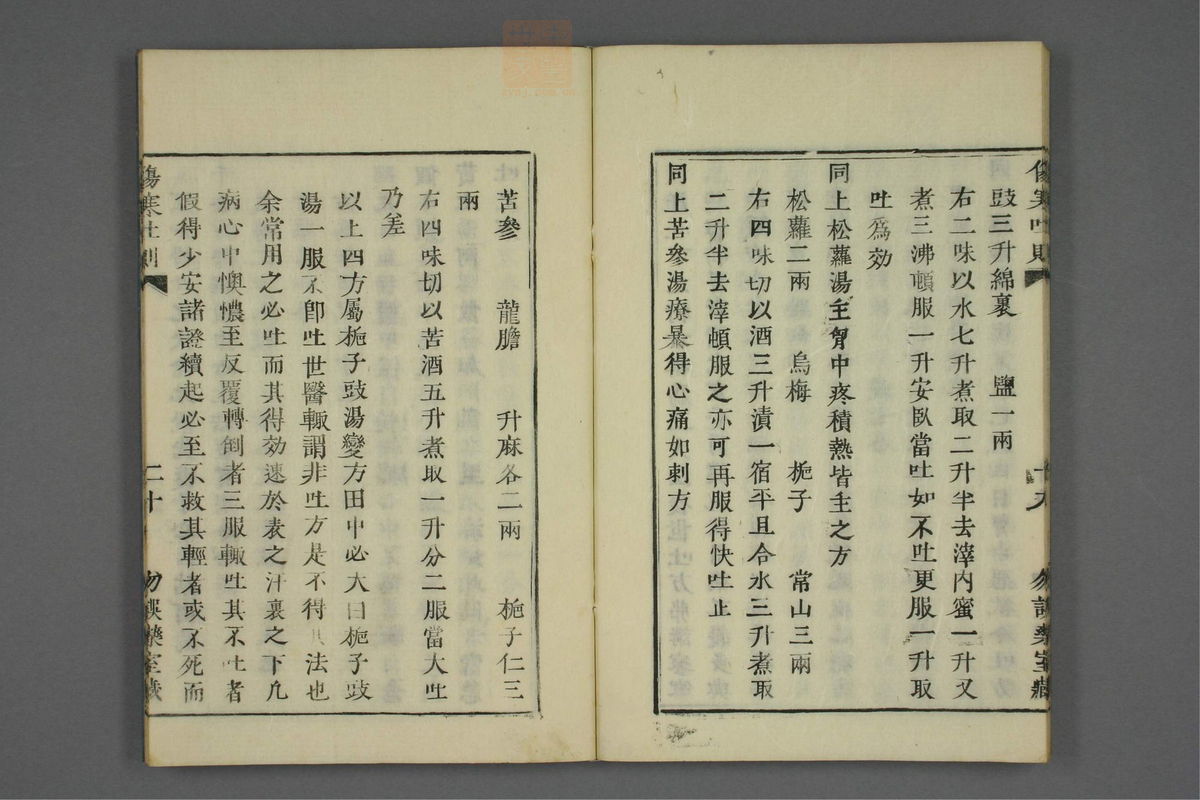 傷寒吐則
十九
豉三升綿裹 鹽一兩
右二味以水七升煮取二升半去滓內蜜一升又
煮三沸頓服一升安臥當吐如不吐更服一升取
吐爲効
同上松蘿湯主胷中疼積熱皆主之方
松蘿二兩 烏梅 梔子 常山三兩
右四味切以酒三升漬一宿平旦合水三升煮取
二升半去滓頓服之亦可再服得快吐止
同上苦參湯療暴得心痛如刺方
苦參 龍膽 升麻各二兩 梔子仁三
兩
右四味切以苦酒五升煮取一升分二服當大吐
乃差
以上四方屬梔子豉湯變方田中必大曰梔子豉
湯一服不卽吐世醫輙謂非吐方是不得其法也
余常用之必吐而其得効速於表之汗裏之下凡
病心中懊憹至反覆轉倒者三服輙吐其不吐者
假得少安諸證續起必至不救其輕者或不死而
傷寒吐則
二十
勿誤藥室藏